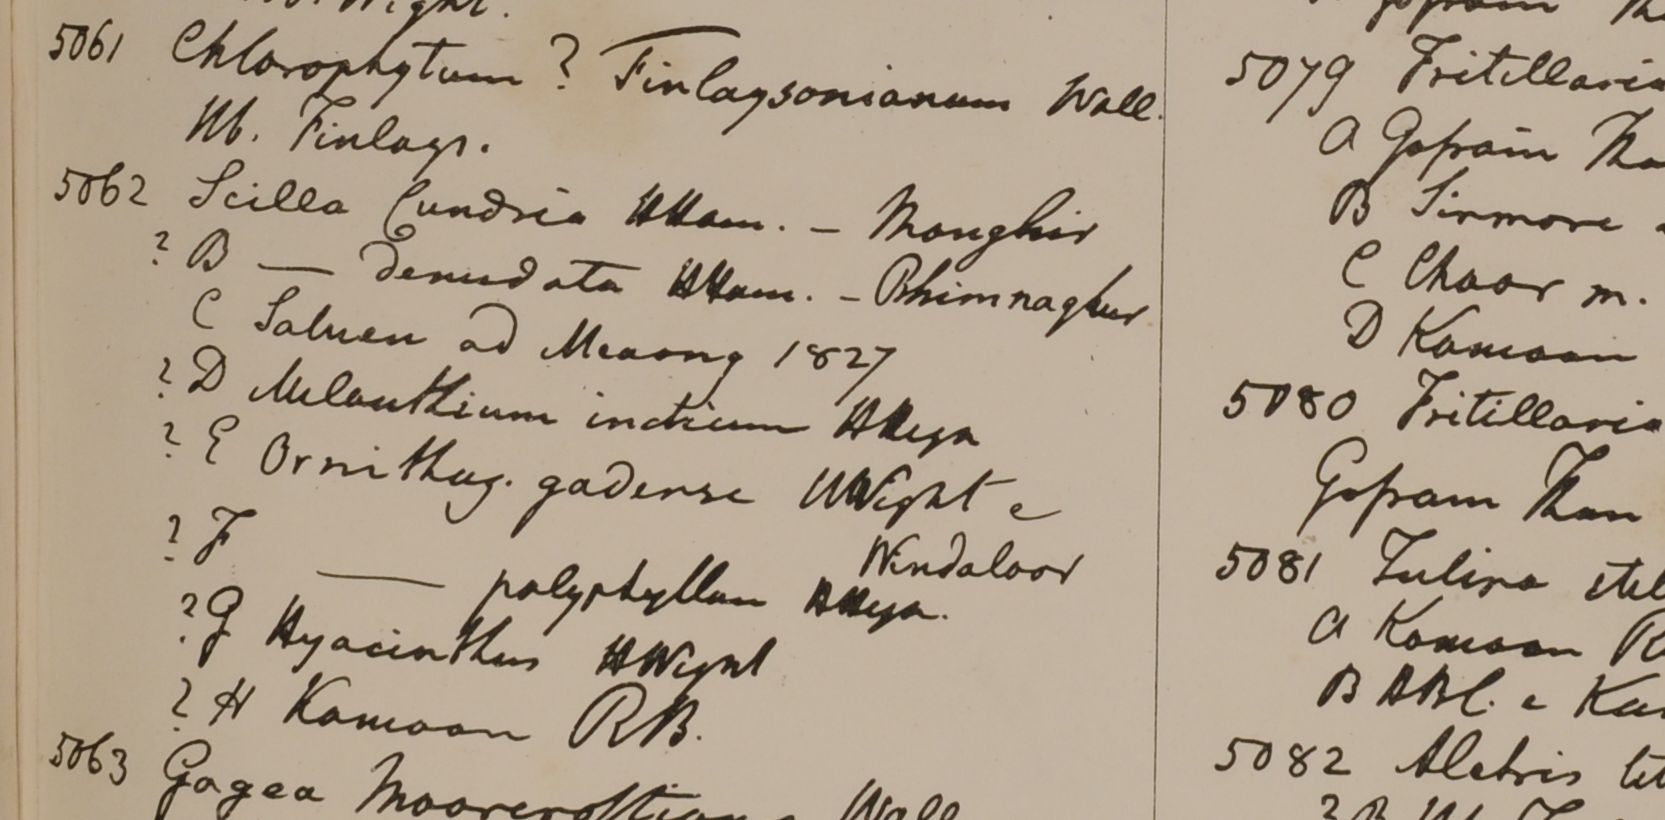 Wight.
5061 Chlorophytum ? Finlaysonianum Wall.
Hb. Finlays.
5062 Scilla Cundria HHam. – Monghir
? B — denudata HHam. – Bhimnaghur
C Saluen ad Meaong 1827
? D Melanthium indicum HHeyn
? E Ornithog. gadense HWight e
Vendaloor
? F — polyphyllum HHeyn.
? G Hyacinthus HWight
? H Kamoon RB.
5063 Gagea Moorcroftiana Wall
5079 Fritillaria
A Gosain Tha
B Sirmore
C Choor m.
D Kamaon
5080 Fritillaria
Gosain Than
5081 Tulipa stel
A Kamaon R
B HBC. e Ka
5082 Aletris